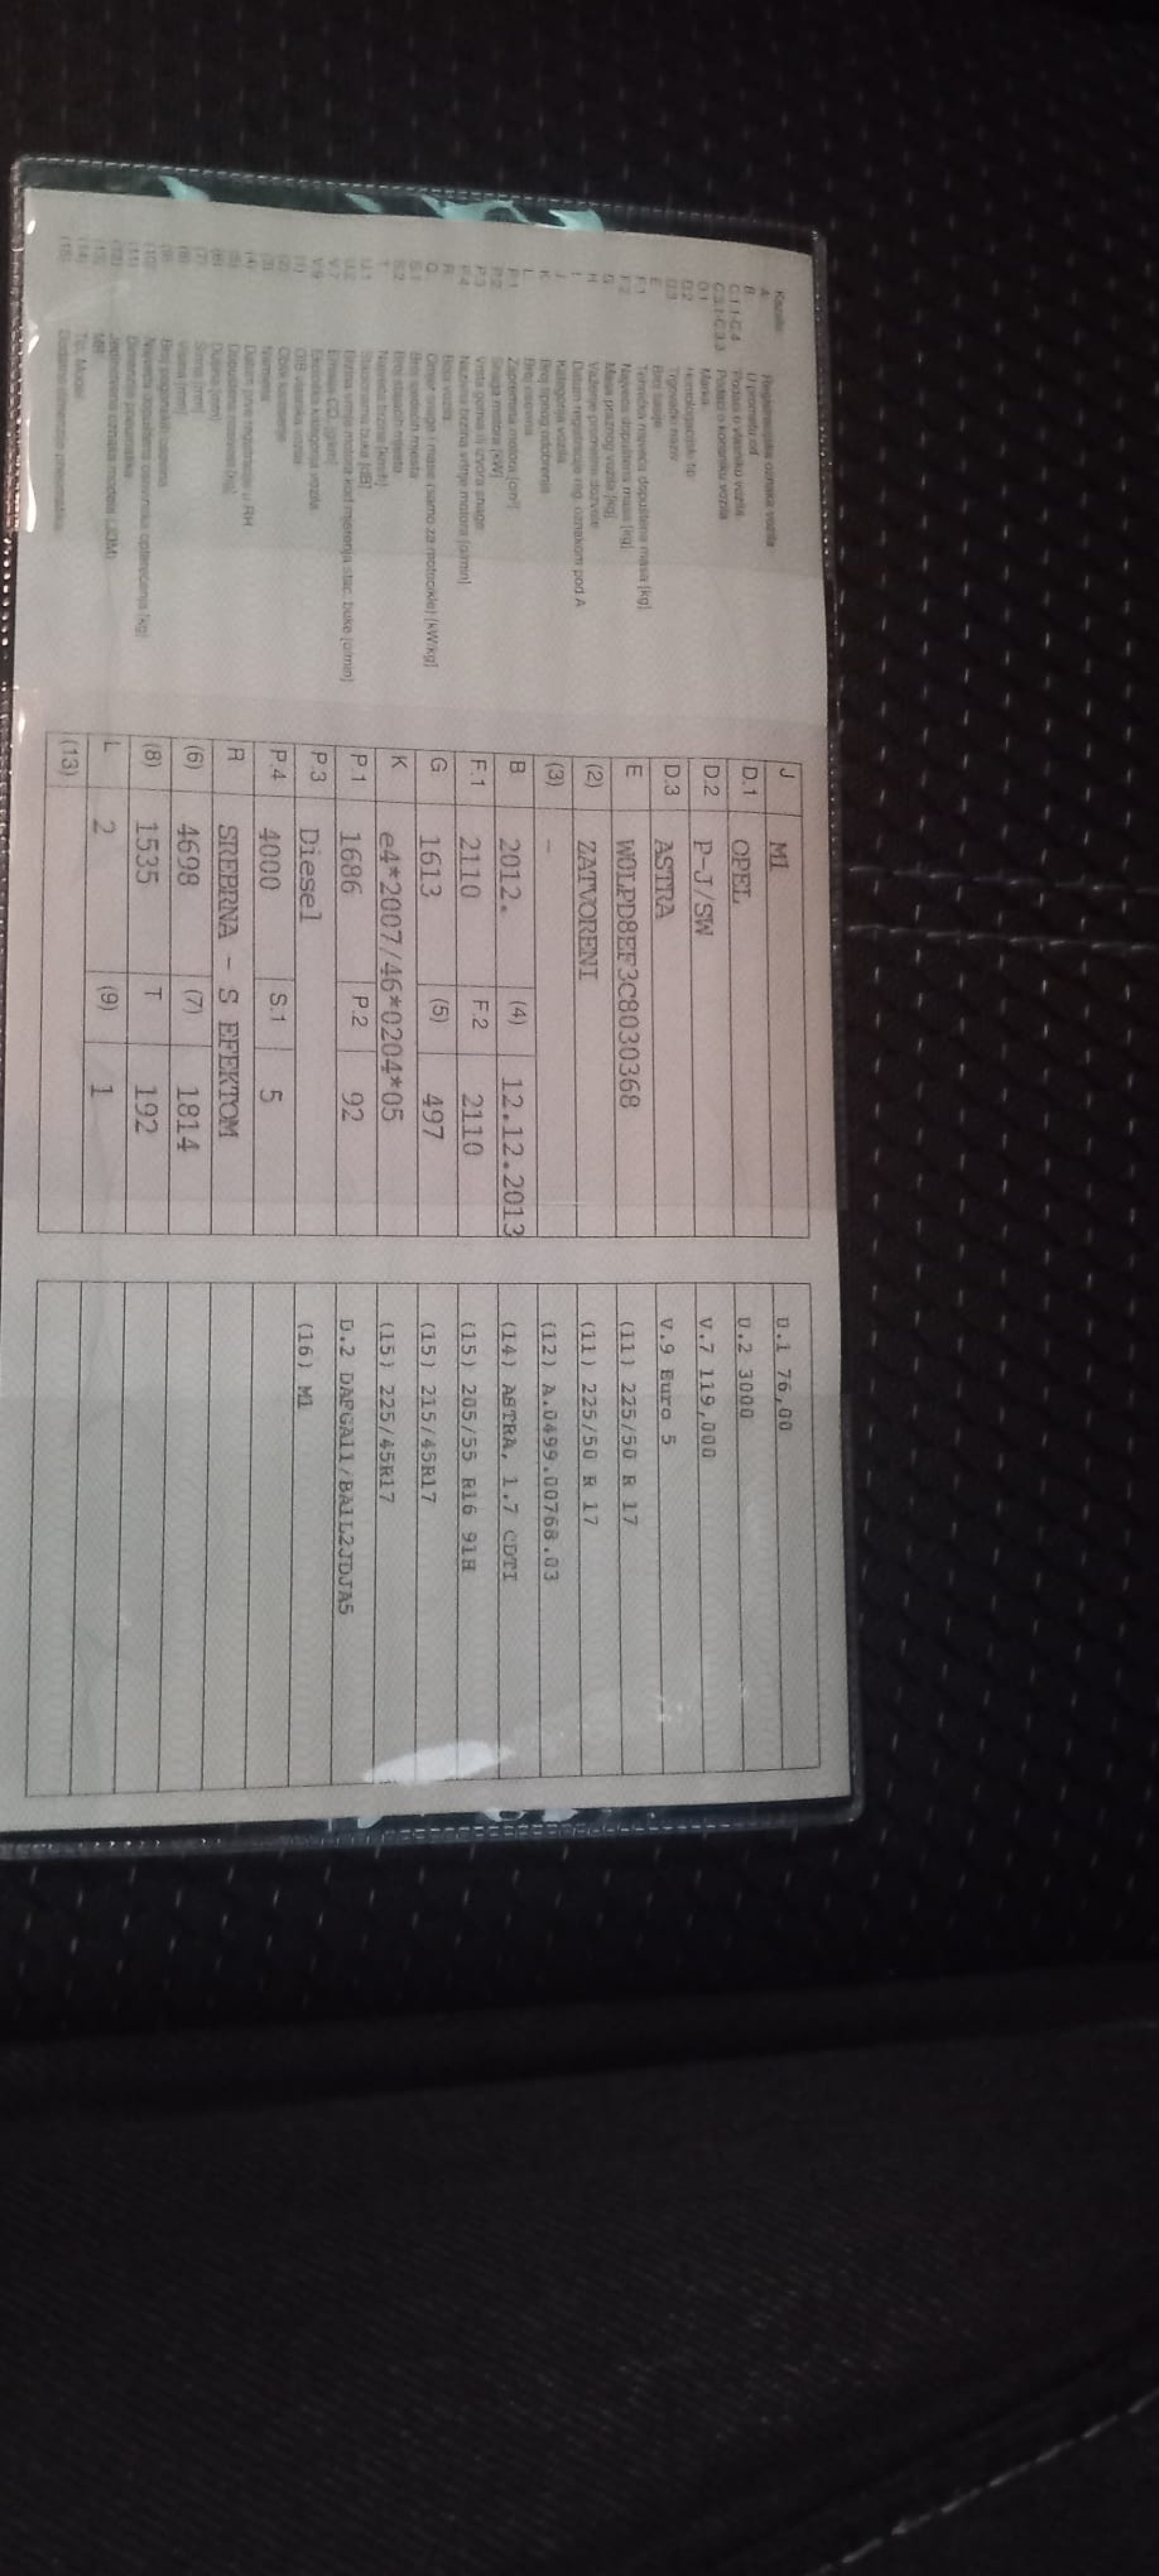 Kazalo:
A Registarska oznaka vozila
B U prometu od
C.1.1-C.4 Podaci o vlasniku vozila
C.3.1-C.3.3 Podaci o korisniku vozila
D.1 Marka
D.2 Homologacijski tip
D.3 Trgovački naziv
E Broj šasije
F.1 Tehnički najveća dopuštena masa [kg]
F.2 Najveća dopuštena masa [kg]
G Masa praznog vozila [kg]
H Važenje prometne dozvole
I Datum registracije reg. oznakom pod A
J Kategorija vozila
K Broj tipnog odobrenja
L Broj osovina
P.1 Zapremina motora [cm³]
P.2 Snaga motora [kW]
P.3 Vrsta goriva ili izvora snage
P.4 Nazivna brzina vrtnje motora [o/min]
R Boja vozila
Q Omjer snage i mase (samo za motocikle) [kW/kg]
S.1 Broj sjedećih mjesta
S.2 Broj stajaćih mjesta
T Najveća brzina [km/h]
U.1 Stacionarna buka [dB]
U.2 Brzina vrtnje motora kod mjerenja stac. buke [o/min]
V.7
V.9 Ekološka kategorija vozila
(1)
(2) Oblik karoserije
(3) Namjena
(4) Datum prve registracije u RH
(5) Dopuštena nosivost [kg]
(6) Dužina [mm]
(7) Širina [mm]
(8) Visina [mm]
(9) Broj pogonskih osovina
(10) Najveća dopuštena osovinska opterećenja [kg]
(11) Dimenzije pneumatika
(12) Jedinstvena oznaka modela (JOM)
(13) MB
(14) Tip, Model
(15) Dodatne dimenzije pneumatika
J M1
D.1 OPEL
D.2 P-J/SW
D.3 ASTRA
E W0LPD8EF3C8030368
(2) ZATVORENI
(3) -
B 2012. (4) 12.12.2013
F.1 2110 F.2 2110
G 1613 (5) 497
K e4*2007/46*0204*05
P.1 1686 P.2 92
P.3 Diesel
P.4 4000 S.1 5
R SREBRNA - S EFEKTOM
(6) 4698 (7) 1814
(8) 1535 T 192
L 2 (9) 1
(13)
U.1 76,00
U.2 3000
V.7 119,000
V.9 Euro 5
(11) 225/50 R 17
(11) 225/50 R 17
(12) A.0499.00768.03
(14) ASTRA, 1.7 CDTI
(15) 205/55 R16 91H
(15) 215/45R17
(15) 225/45R17
D.2 DAFGA11/BA1L2JDJA5
(16) M1